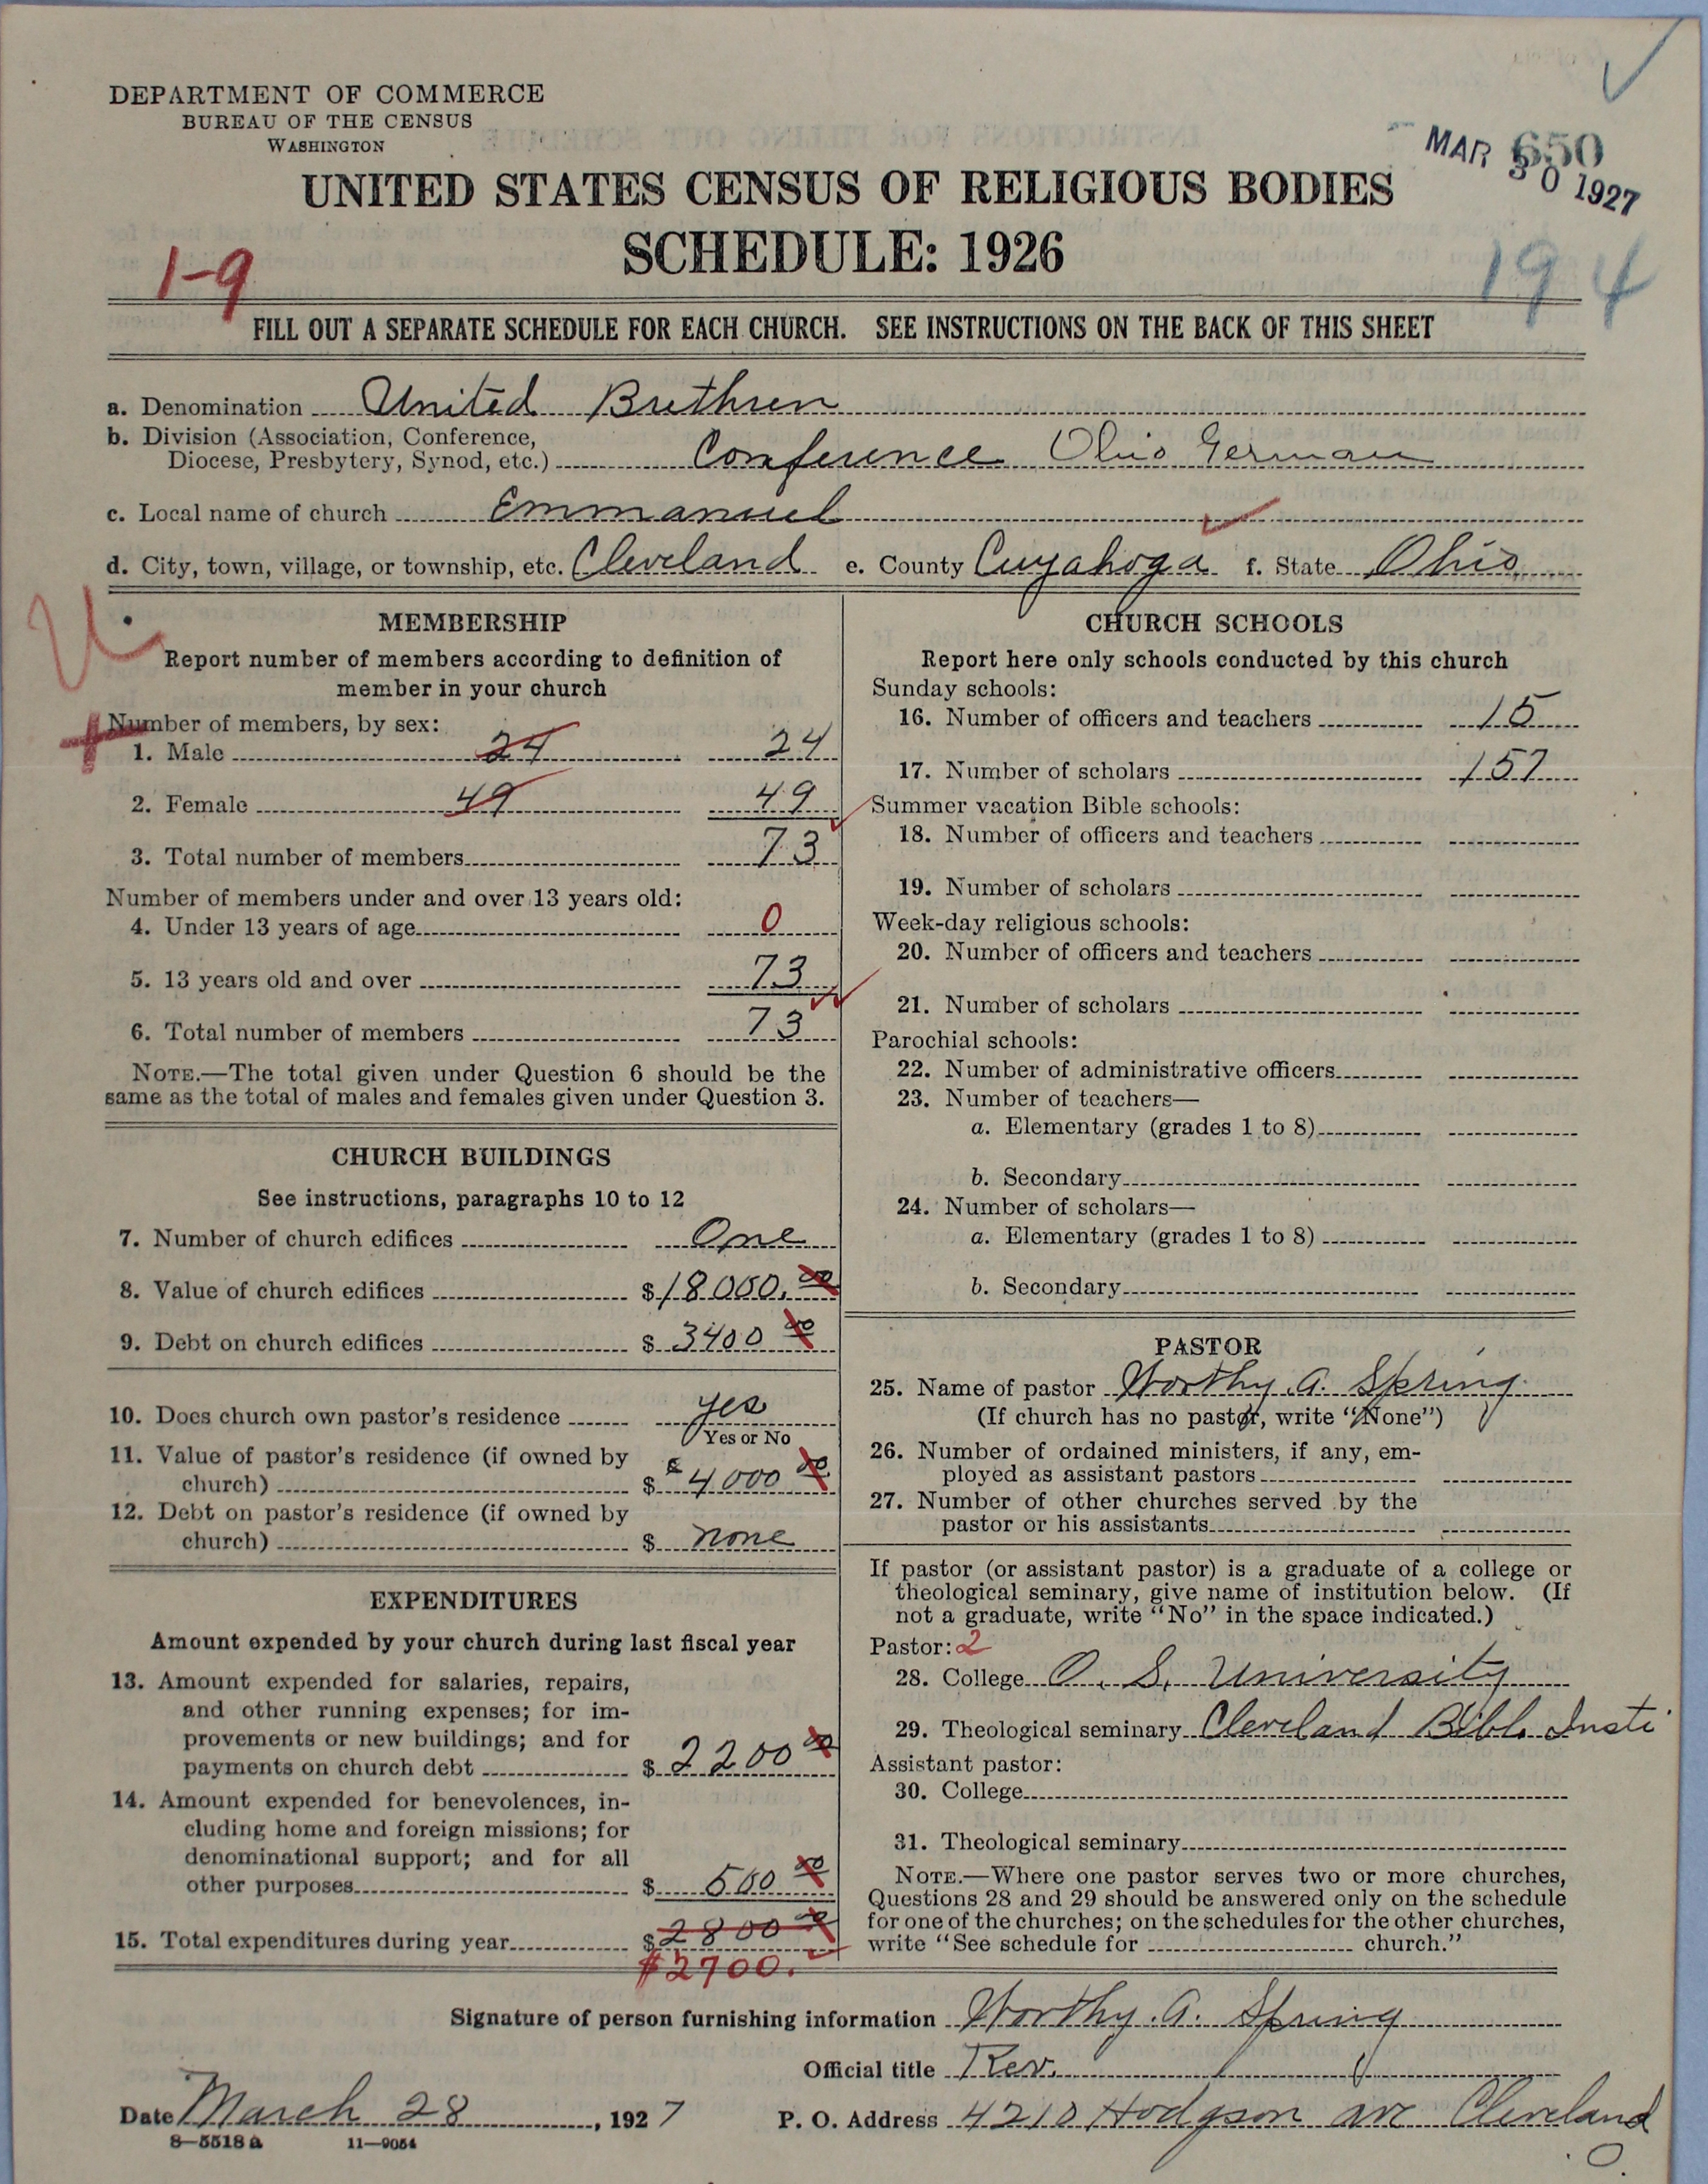 DEPARTMENT OF COMMERCE
BUREAU OF THE CENSUS
WASHINGTON
650
MAR 30 1927
UNITED STATES CENSUS OF RELIGIOUS BODIES
SCHEDULE: 1926
1-9
194
FILL OUT A SEPARATE SCHEDULE FOR EACH CHURCH. SEE INSTRUCTIONS ON THE BACK OF THIS SHEET
a. Denomination United Brethren
b. Division (Association, Conference,
Diocese, Presbytery, Synod, etc.) Conference Ohio German
c. Local name of church Emmanuel
d. City, town, village, or township, etc. Cleveland e. County Cuyahoga f. State Ohio
MEMBERSHIP
Report number of members according to definition of
member in your church
Number of members, by sex:
1. Male 24 24
2. Female 49 49
3. Total number of members 73
Number of members under and over 13 years old:
4. Under 13 years of age 0
5. 13 years old and over 73
6. Total number of members 73
NOTE.—The total given under Question 6 should be the
same as the total of males and females given under Question 3.
CHURCH BUILDINGS
See instructions, paragraphs 10 to 12
7. Number of church edifices One
8. Value of church edifices $ 18000.00
9. Debt on church edifices $ 3400 00
10. Does church own pastor's residence yes
Yes or No
11. Value of pastor's residence (if owned by
church) $ 4000 00
12. Debt on pastor's residence (if owned by
church) $ none
EXPENDITURES
Amount expended by your church during last fiscal year
13. Amount expended for salaries, repairs,
and other running expenses; for im-
provements or new buildings; and for
payments on church debt $ 2200 00
14. Amount expended for benevolences, in-
cluding home and foreign missions; for
denominational support; and for all
other purposes $ 500 00
15. Total expenditures during year $ 2800 00
$2700.
CHURCH SCHOOLS
Report here only schools conducted by this church
Sunday schools:
16. Number of officers and teachers 15
17. Number of scholars 157
Summer vacation Bible schools:
18. Number of officers and teachers
19. Number of scholars
Week-day religious schools:
20. Number of officers and teachers
21. Number of scholars
Parochial schools:
22. Number of administrative officers
23. Number of teachers—
a. Elementary (grades 1 to 8)
b. Secondary
24. Number of scholars—
a. Elementary (grades 1 to 8)
b. Secondary
PASTOR
25. Name of pastor Worthy. A. Spring
(If church has no pastor, write "None")
26. Number of ordained ministers, if any, em-
ployed as assistant pastors
27. Number of other churches served by the
pastor or his assistants
If pastor (or assistant pastor) is a graduate of a college or
theological seminary, give name of institution below. (If
not a graduate, write "No" in the space indicated.)
Pastor: 2
28. College O. S. University
29. Theological seminary Cleveland Bible Insti
Assistant pastor:
30. College
31. Theological seminary
NOTE.—Where one pastor serves two or more churches,
Questions 28 and 29 should be answered only on the schedule
for one of the churches; on the schedules for the other churches,
write "See schedule for church."
Signature of person furnishing information Worthy. A. Spring
Official title Rev.
Date March 28, 1927 P. O. Address 4210 Hodgson ave Cleveland
O.
8—5518a 11—9054